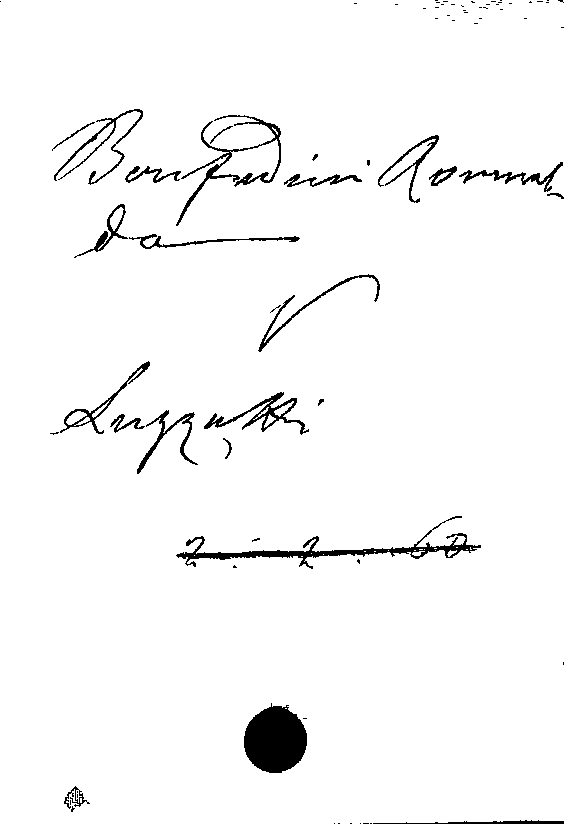 Bonfadini Romual-
da
V
Luzzatti
2. 2. 60